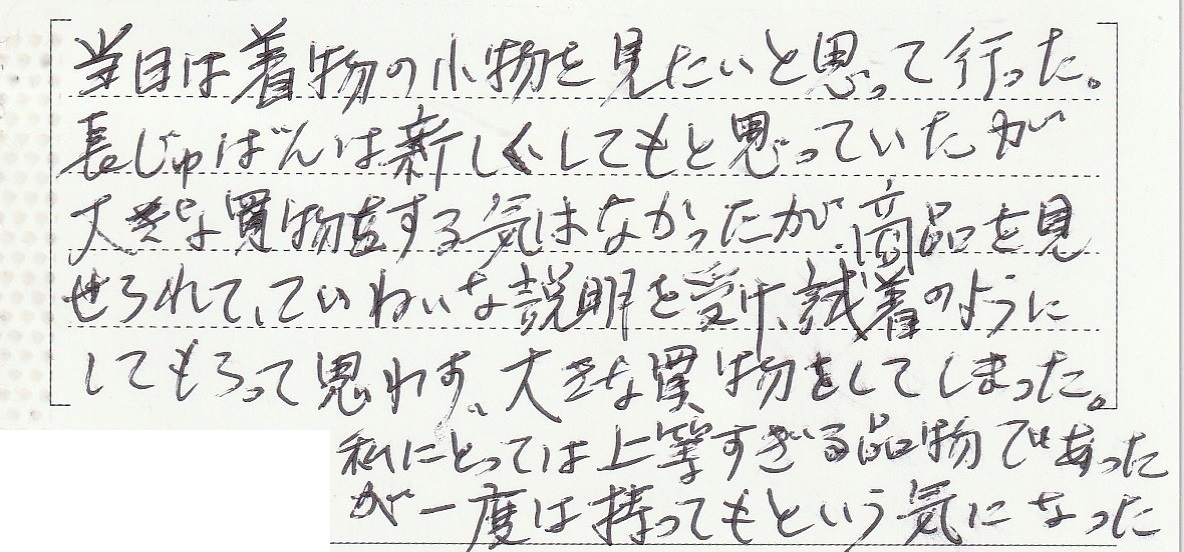 当日は着物の小物を見たいと思って行った。
長じゅばんは新しくしてもと思っていたが
大きな買物をする気はなかったが、商品を見
せられて、ていねいな説明を受け、試着のように
してもらって思わず、大きな買物をしてしまった。
私にとっては上等すぎる品物であった
が一度は持ってもという気になった